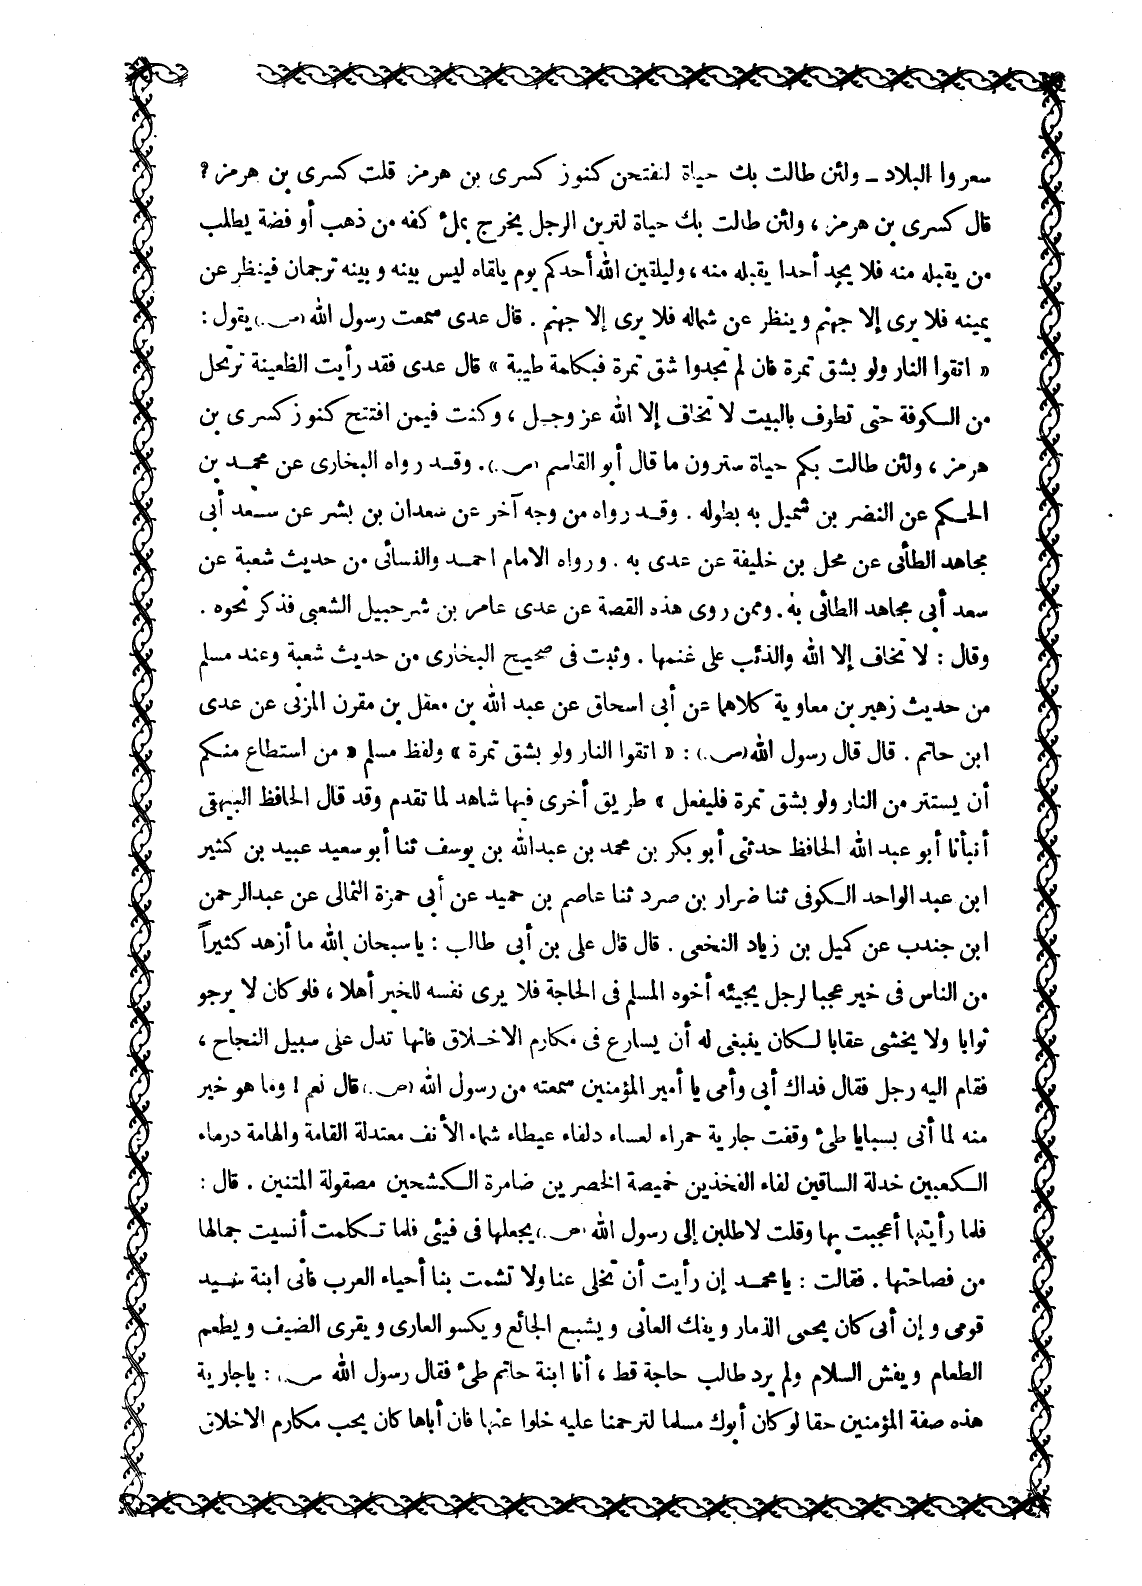 سعروا البلاد ــ ولئن طالت بك حياة لتفتحن كنوز كسرى بن هرمز قلت كسرى بن هرمز ؟
قال كسرى بن هرمز ، ولئن طالت بك حياة لترين الرجل يخرج بملء كفه من ذهب أو فضة يطلب
من يقبله منه فلا يجد أحدا يقبله منه ، وليلقين الله أحدكم يوم يلقاه ليس بينه وبينه ترجمان فينظر عن
يمينه فلا يرى إلا جهنم وينظر عن شماله فلا يرى إلا جهنم . قال عدى سمعت رسول الله (ص.) يقول :
« اتقوا النار ولو بشق تمرة فان لم تجدوا شق تمرة فبكلمة طيبة » قال عدى فقد رأيت الظعينة ترتحل
من الكوفة حتى تطوف بالبيت لا تخاف إلا الله عز وجل ، وكنت فيمن افتتح كنوز كسرى بن
هرمز ، ولئن طالت بكم حياة سترون ما قال أبو القاسم (ص.) . وقد رواه البخارى عن محمد بن
الحكم عن النضر بن شميل به بطوله . وقد رواه من وجه آخر عن سعدان بن بشر عن سعد أبى
مجاهد الطائى عن محل بن خليفة عن عدى به . ورواه الامام احمد والنسائى من حديث شعبة عن
سعد أبى مجاهد الطائى به . وممن روى هذه القصة عن عدى عامر بن شرحبيل الشعبى فذكر نحوه .
وقال : لا تخاف إلا الله والذئب على غنمها . وثبت فى صحيح البخارى من حديث شعبة وعند مسلم
من حديث زهير بن معاوية كلاهما عن أبى اسحاق عن عبد الله بن معقل بن مقرن المزنى عن عدى
ابن حاتم . قال قال رسول الله (ص.) : « اتقوا النار ولو بشق تمرة » ولفظ مسلم « من استطاع منكم
أن يستتر من النار ولو بشق تمرة فليفعل » طريق أخرى فيها شاهد لما تقدم وقد قال الحافظ البيهقى
أنبأنا أبو عبد الله الحافظ حدثنى أبو بكر بن محمد بن عبدالله بن يوسف ثنا أبو سعيد عبيد بن كثير
ابن عبد الواحد الكوفى ثنا ضرار بن صرد ثنا عاصم بن حميد عن أبى حمزة الثمالى عن عبدالرحمن
ابن جندب عن كميل بن زياد النخعى . قال قال على بن أبى طالب : يا سبحان الله ما أزهد كثيراً
من الناس فى خير عجبا لرجل يجيئه أخوه المسلم فى الحاجة فلا يرى نفسه للخير أهلا ، فلو كان لا يرجو
ثوابا ولا يخشى عقابا لكان ينبغى له أن يسارع فى مكارم الاخلاق فانها تدل على سبيل النجاح ،
فقام اليه رجل فقال فداك أبى وأمى يا أمير المؤمنين سمعته من رسول الله (ص.) قال نعم ! وما هو خير
منه لما أتى بسبايا طئ وقفت جارية حمراء لعساء دلفاء عيطاء شماء الأنف معتدلة القامة والهامة درماء
الكعبين خدلة الساقين لفاء الفخذين خميصة الخصرين ضامرة الكشحين مصقولة المتنين . قال :
فلما رأيتها أعجبت بها وقلت لاطلبن إلى رسول الله (ص.) يجعلها فى فيئى فلما تكلمت أنسيت جمالها
من فصاحتها . فقالت : يا محمد إن رأيت أن تخلى عنا ولا تشمت بنا أحياء العرب فانى ابنة سيد
قومى وإن أبى كان يحمى الذمار ويفك العانى ويشبع الجائع ويكسو العارى ويقرى الضيف ويطعم
الطعام ويفش السلام ولم يرد طالب حاجة قط ، أنا ابنة حاتم طئ فقال رسول الله ص. : يا جارية
هذه صفة المؤمنين حقا لو كان أبوك مسلما لترحمنا عليه خلوا عنها فان أباها كان يحب مكارم الاخلاق